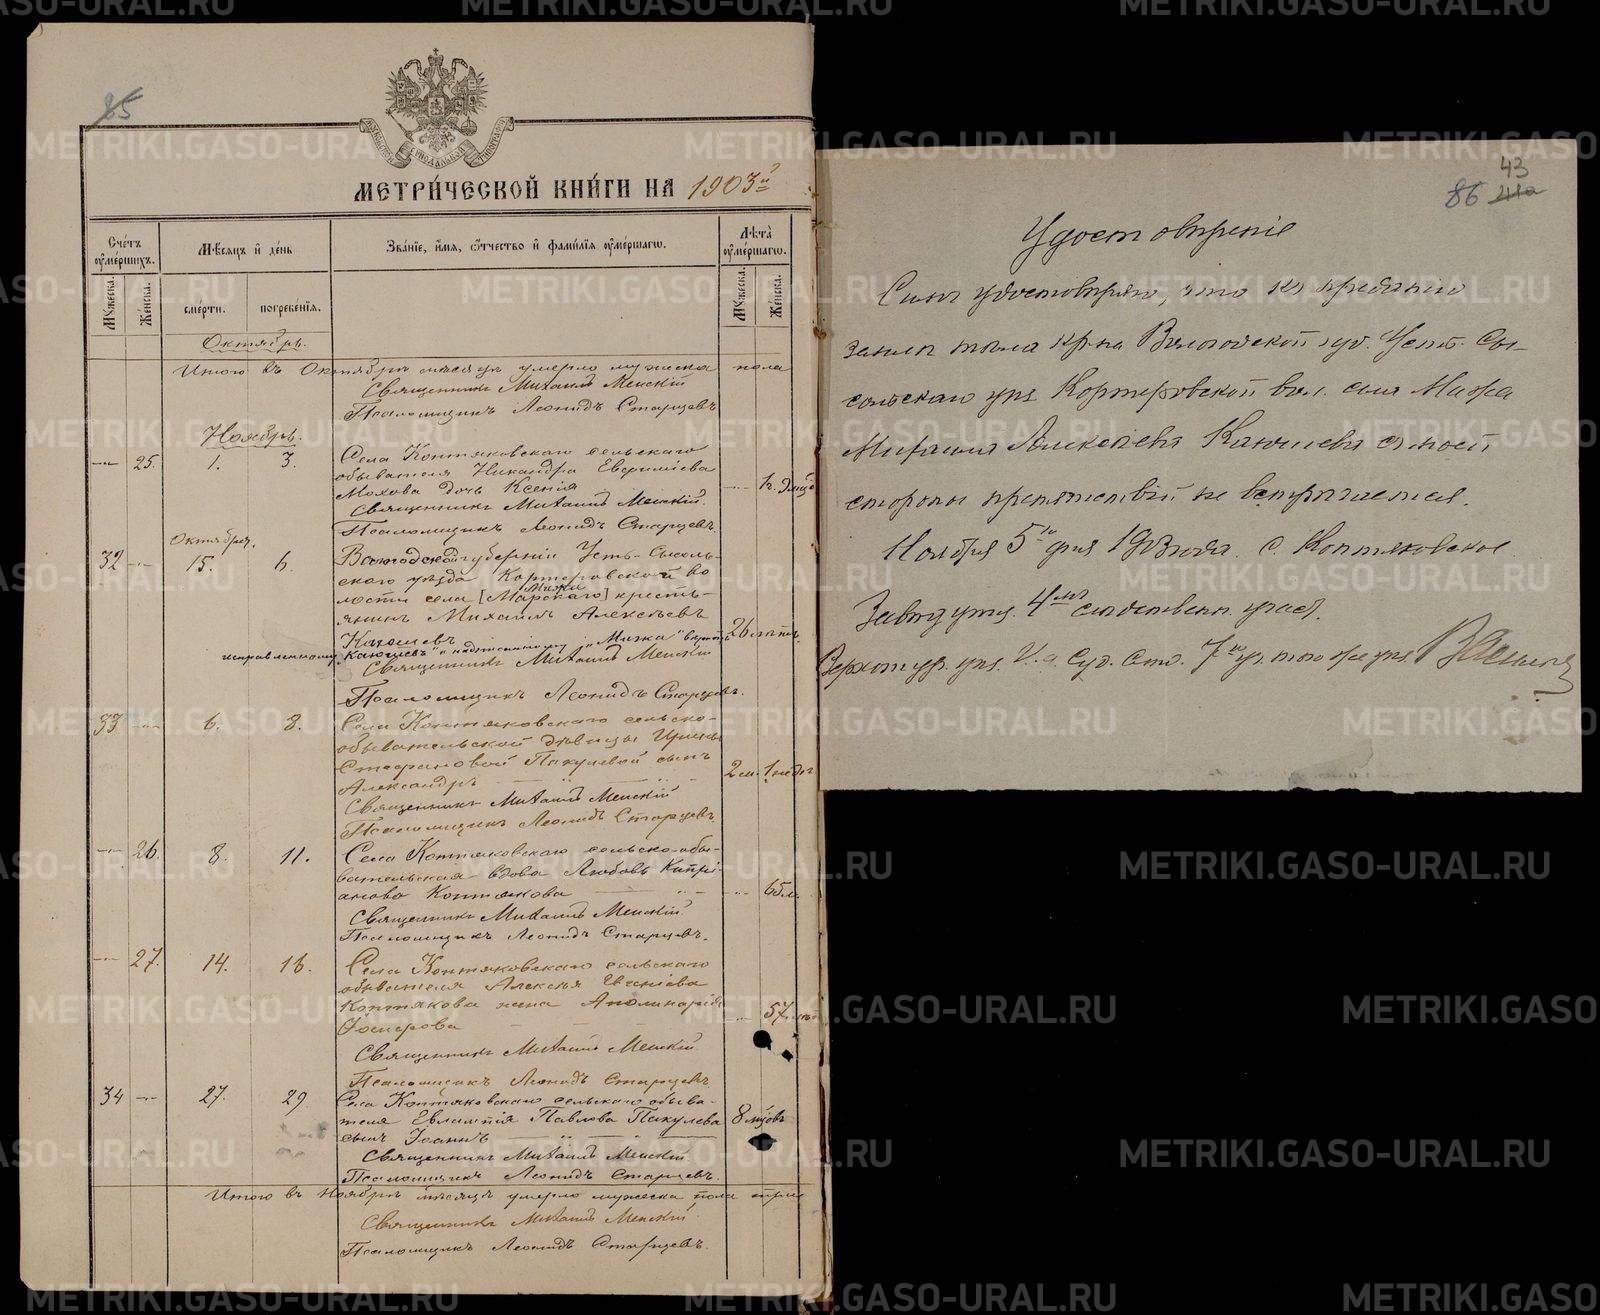 85
МОСКОВСКОЙ СѴНОДАЛЬНОЙ ТИПОГРАФІИ
МЕТРИ́ЧЕСКОЙ КНИ́ГИ НА 1903й
Сче́тъ ᲂумéршихъ.
Мѣ́сяцъ и҆ де́нь
Зва́нїе, и҆́мя, ѻ҆́тчество и҆ фами́лїя ᲂумéршагѡ.
Лѣ́та ᲂумéршагѡ.
Мꙋ́жеска.
Же́нска.
сме́рти.
погребе́нїя.
Мꙋ́жеска.
Же́нска.
Октябрь.
Итого въ Октябрѣ мѣсяцѣ умерло мужска пола
Священникъ Михаилъ Менскій
Псаломщикъ Леонидъ Старцевъ
Ноябрь.
25. 1. 3. Села Коптяковскаго сельскаго
обывателя Никандра Евфиміева
Мохова дочь Ксенія
Священникъ Михаилъ Менскій.
Псаломщикъ Леонидъ Старцевъ.
Октября.
32 15. 6. Вологодской губерніи Усть-Сысоль-
скаго уѣзда Кортеровской во
Мижи
лости села [Марскаго] кресть-
янинъ Михаилъ Алексѣевъ
Канюшевъ 26 лѣтъ
исправленному "Канюшевъ" и надписанному "Мижа" вѣрить
Священникъ Михаилъ Менскій
Псаломщикъ Леонидъ Старцевъ.
33 6. 8. Села Коптяковскаго сельско-
обывательской дѣвицы Ирины
Стефановой Пакулевой сынъ
Александръ 2 м. 1 нед.
Священникъ Михаилъ Менскій
Псаломщикъ Леонидъ Старцевъ
26. 8. 11. Села Коптяковскаго сельско-обы-
вательская вдова Любовь Кипрі-
анова Коптякова 65 л.
Священникъ Михаилъ Менскій.
Псаломщикъ Леонидъ Старцевъ.
27. 14. 16. Села Коптяковскаго сельскаго
обывателя Алексѣя Евгеніева
Коптякова жена Аполинарія
57 лѣт
Священникъ Михаилъ Менскій
Псаломщикъ Леонидъ Старцевъ
34 27. 29 Села Коптяковскаго сельскаго обыва-
теля Евлампія Павлова Пакулева 8 мцовъ
сынъ Іоаннъ
Священникъ Михаилъ Менскій
Псаломщикъ Леонидъ Старцевъ.
Итого въ Ноябрѣ мѣсяцѣ умерло мужеска пола три
Священникъ Михаилъ Менскій
Псаломщикъ Леонидъ Старцевъ.
43
86 41а
Удостовѣреніе
Симъ удостовѣряю, что къ преданію
землѣ тѣла кр-на Вологодской губ. Усть. Сы-
сольскаго уѣз. Кортеровской вол. села Мижа
Михаила Алексѣева Канюшева съ моей
стороны препятствій не встрѣчается.
Ноября 5го дня 1903 года. с. Коптяковское
Завѣдующ. 4мъ слѣдственн. участ.
Верхотур. уѣз. И. д. Суд. Слѣд. 7го уч. того же уѣз.
METRIKI.GASO-URAL.RU